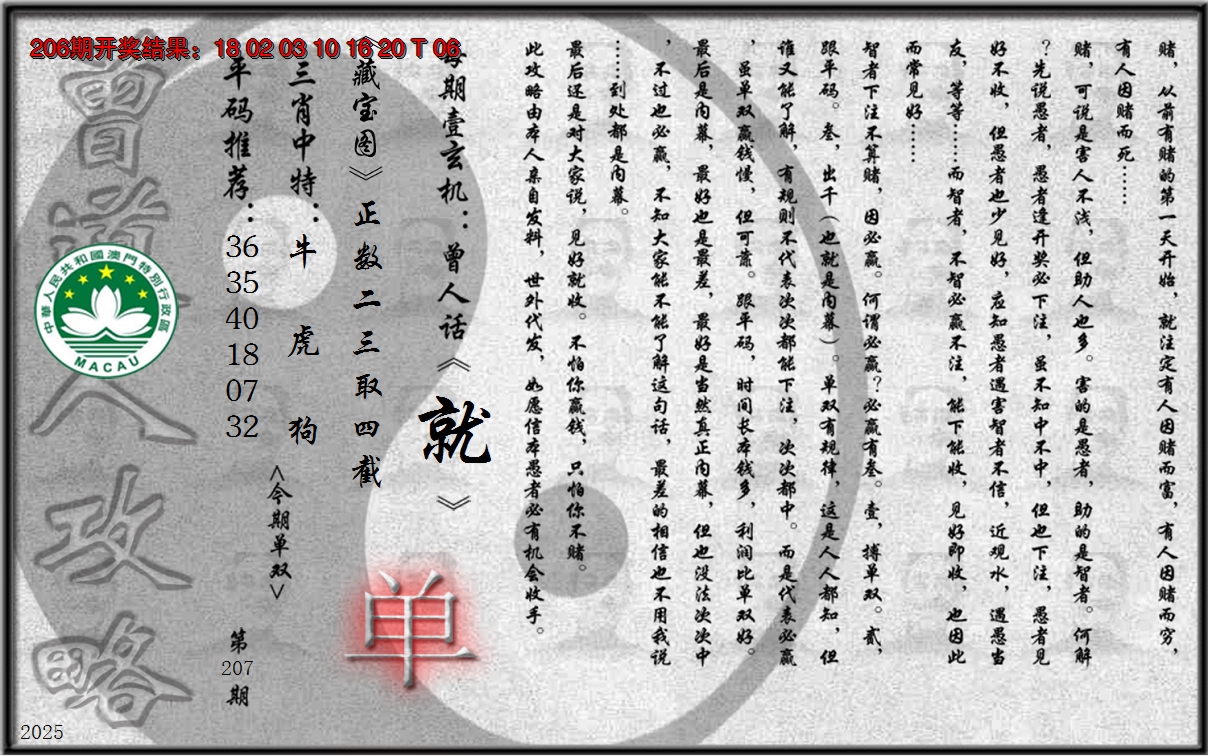 206期开奖结果：18 02 03 10 16 20 T 06
赌，从前有赌的第一天开始，就注定有人因赌而富，有人因赌而穷，
有人因赌而死……
赌，可说是害人不浅，但助人也多。害的是愚者，助的是智者。何解
？先说愚者，愚者逢开奖必下注，虽不知中不中，但也下注，愚者见
好不收，但愚者也少见好，应知愚者遇害智者不信，近观水，遇愚当
友，等等……而智者，不智必赢不注，能下能收，见好即收，也因此
而常见好……
智者下注不算赌，因必赢。何谓必赢？必赢有叁。壹，搏单双。贰，
跟平码。叁，出千（也就是内幕）。单双有规律，这是人人都知，但
谁又能了解，有规则不代表次次都能下注，次次都中。而是代表必赢
，虽单双赢钱慢，但可靠。跟平码，时间长本钱多，利润比单双好。
最后是内幕，最好也是最差，最好是当然真正内幕，但也没法次次中
，不过也必赢，不知大家能不能了解这句话，最差的相信也不用我说
……到处都是内幕。
最后还是对大家说，见好就收。不怕你赢钱，只怕你不赌。
此攻略由本人亲自发料，世外代发，如愿信本愚者必有机会收手。
每期壹玄机：曾人话《就》
《藏宝图》正数二三取四截
单
三肖中特：牛 虎 狗
<今期单双>
平码推荐：
36
35
40
18
07
32
第
207
期
曾道人攻略
中華人民共和國澳門特別行政區
MACAU
2025